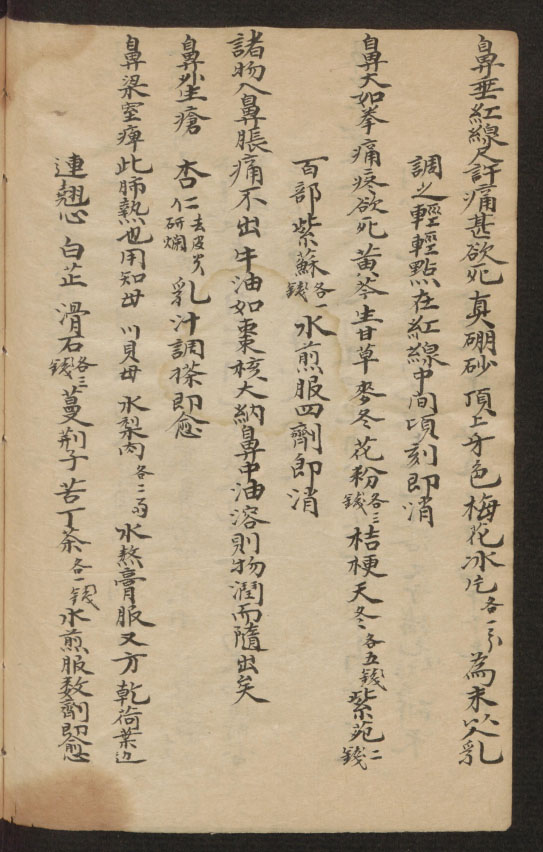 鼻垂紅線尺許痛甚欲死真硼砂頂上牙色梅花冰片各一分為末以乳
調之輕輕點在紅線中間頃刻即消
鼻大如拳痛疼欲死黃芩生甘草麥冬花粉各三錢桔梗天冬各五錢紫苑二錢
百部紫蘇各一錢水煎服四劑即消
諸物入鼻脹痛不出牛油如棗核大納鼻中油溶則物潤而隨出矣
鼻生瘡 杏仁去皮尖研爛乳汁調搽即愈
鼻梁窒痺此肺熱也用知母川貝母水梨肉各二两水熬膏服又方乾荷葉边
連翹心白芷滑石各三錢蔓荆子苦丁茶各一錢水煎服数劑即愈